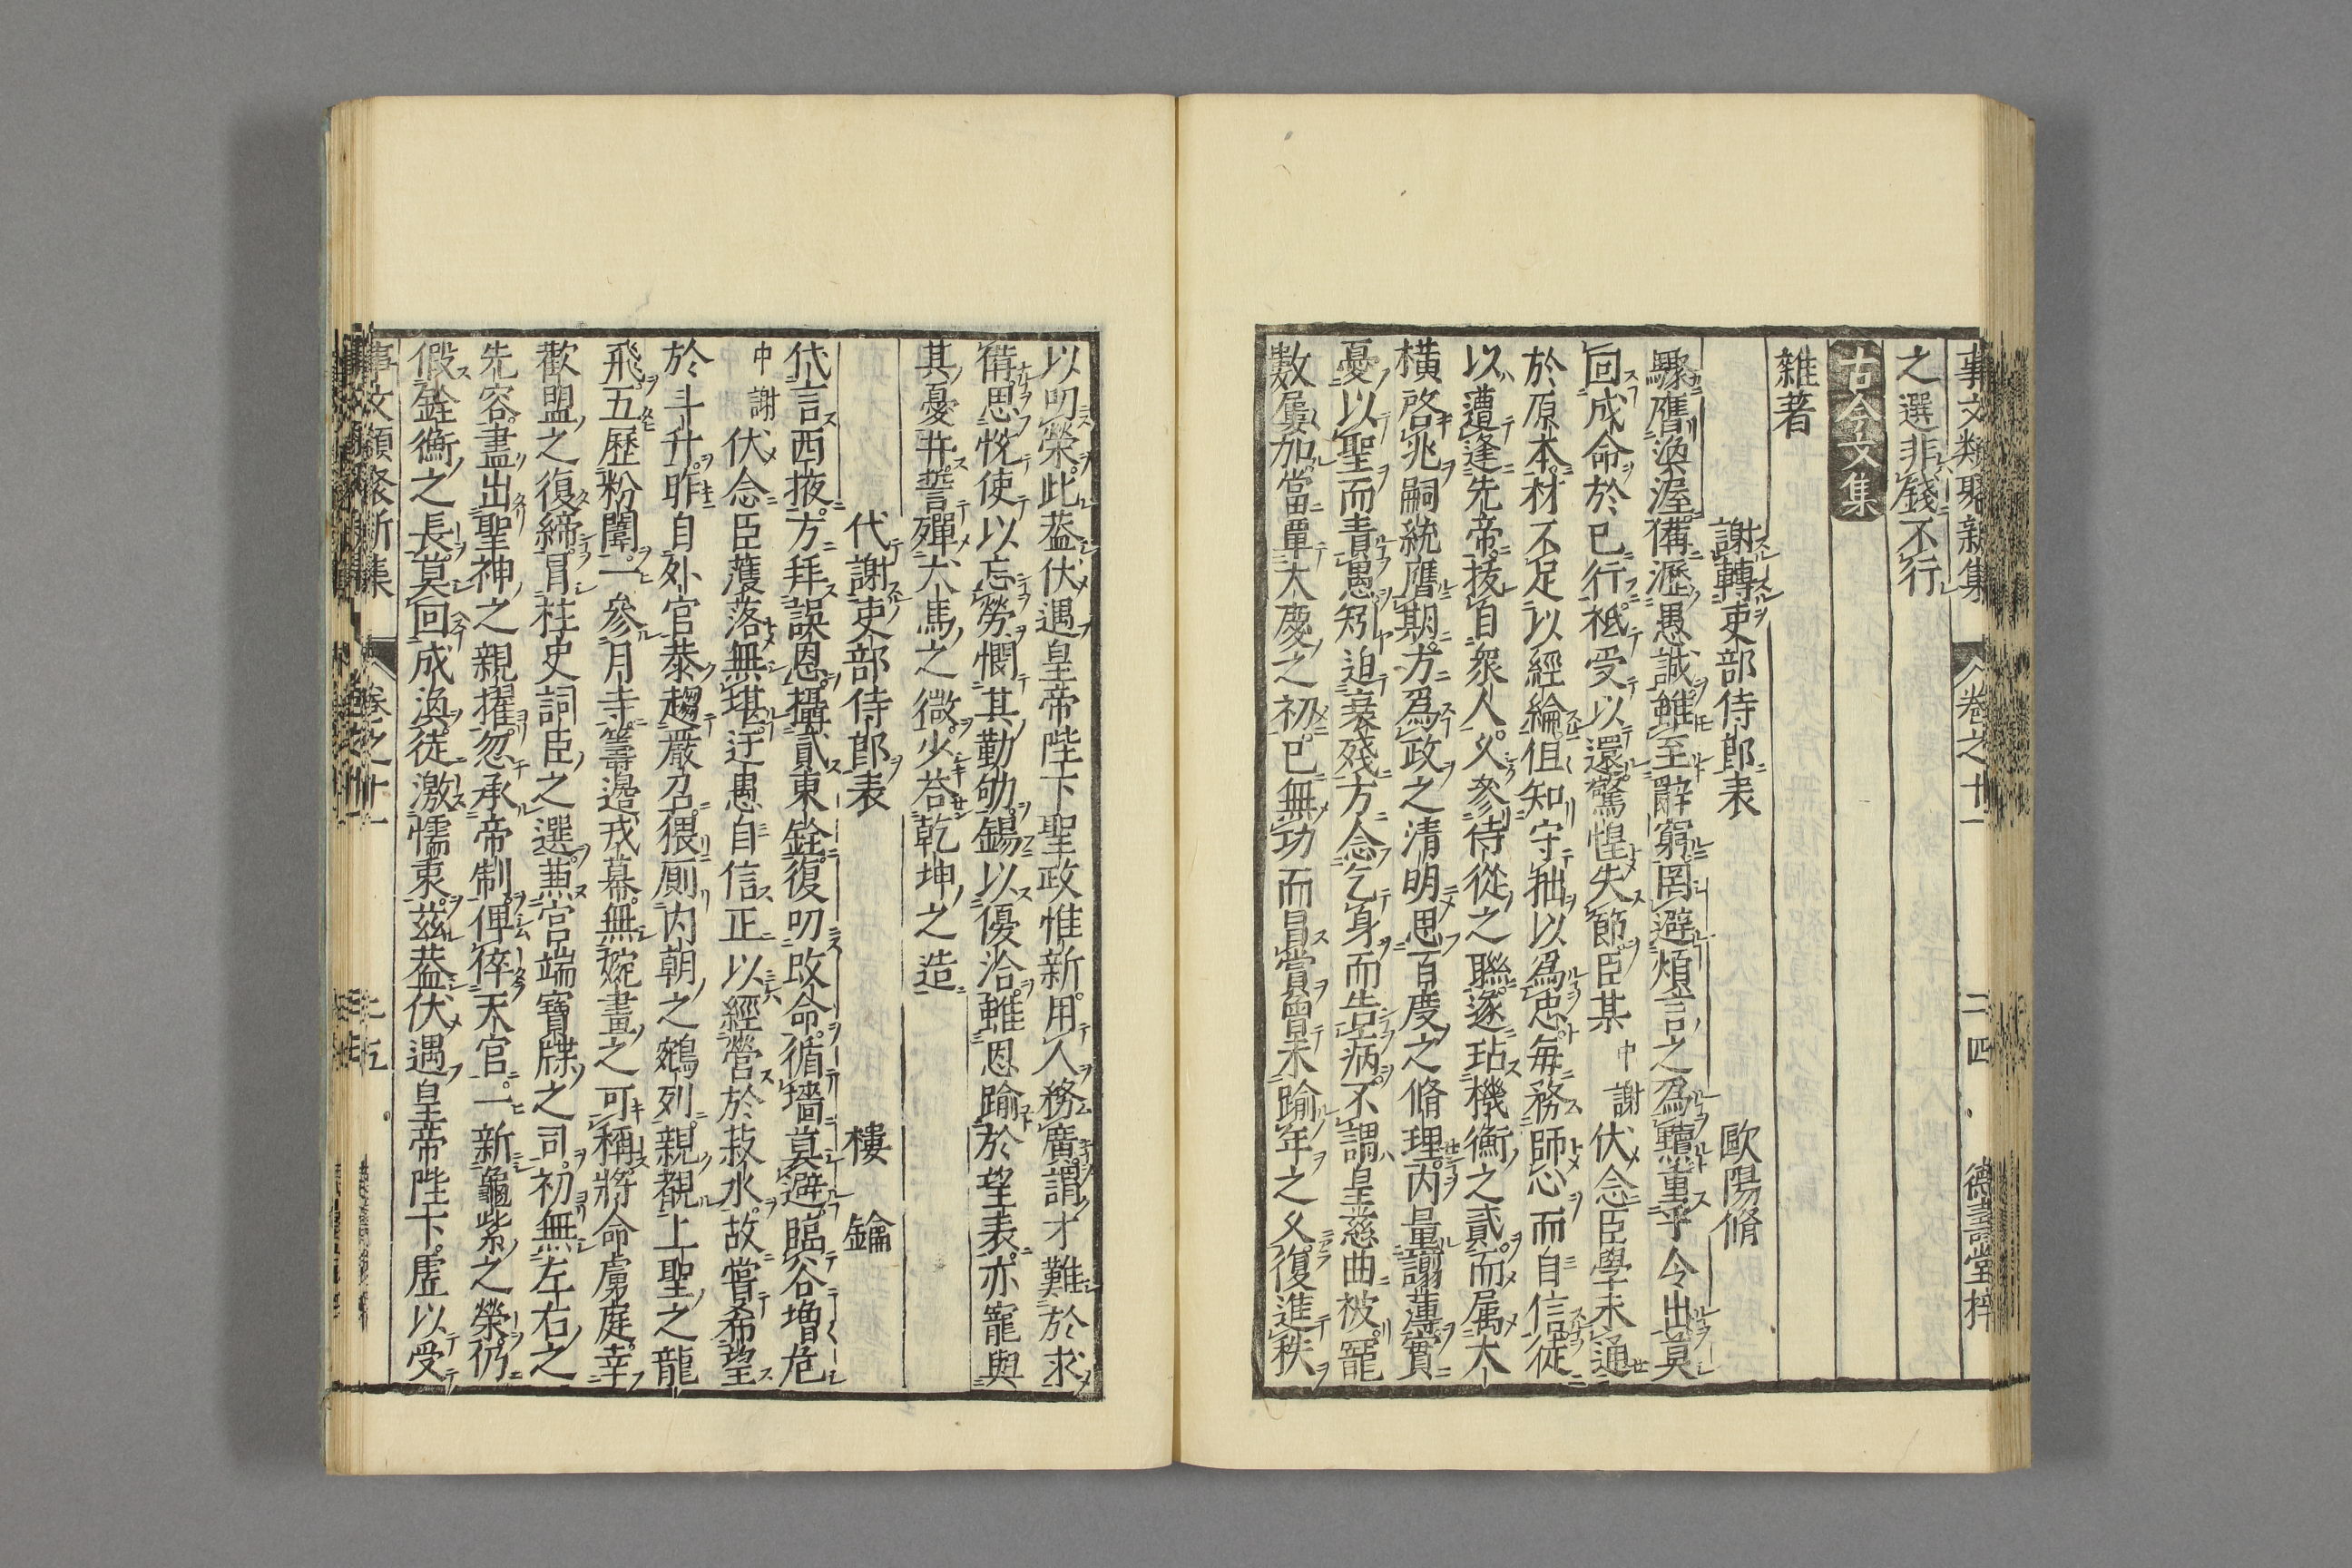 事文類聚新集 卷之十一 二四 德壽堂梓
之選非錢不行
古今文集
雜著
謝轉吏部侍郎表 歐陽脩
驟膺渙渥備瀝愚誠雖至辭窮罔避煩言之爲黷重乎令出莫
回成命於已行祗受以還驚惶失節臣某中謝伏念臣學未通
於原本材不足以經綸但知守拙以爲忠每務師心而自信從
以遭逢先帝拔自衆人久參侍從之聯遂玷機衡之貳而属大
橫啓兆嗣統膺期方爲政之清明思百度之脩理内量譾薄實
憂以聖而責愚矧迫衰殘方念乞身而告病不謂皇慈曲被寵
數屢加當覃大慶之初已無功而冒賞曾未踰年之久復進秩
以叨榮此葢伏遇皇帝陛下聖政惟新用人務廣謂才難於求
備思悅使以忘勞憫其勤劬錫以優洽雖恩踰於望表亦寵與
其憂幷誓殫犬馬之微少荅乾坤之造
代謝吏部侍郎表 樓鑰
代言西掖方拜誤恩攝貳東銓復叨改命循墻莫避臨谷增危
中謝伏念臣濩落無堪迂愚自信正以經營於菽水故嘗希望
於斗升昨自外官恭趨嚴召猥厠内朝之鵷列親覩上聖之龍
飛五歷粉闈一參月寺籌邊戎幕無婉畫之可稱將命虜庭幸
歡盟之復締冒柱史詞臣之選兼宮端寶牒之司初無左右之
先容盡出聖神之親擢忽承帝制俾倅天官一新龜紫之榮仍
假銓衡之長莫回成渙徒激懦衷茲葢伏遇皇帝陛下虛以受
事文類聚新集 卷之十一 二五